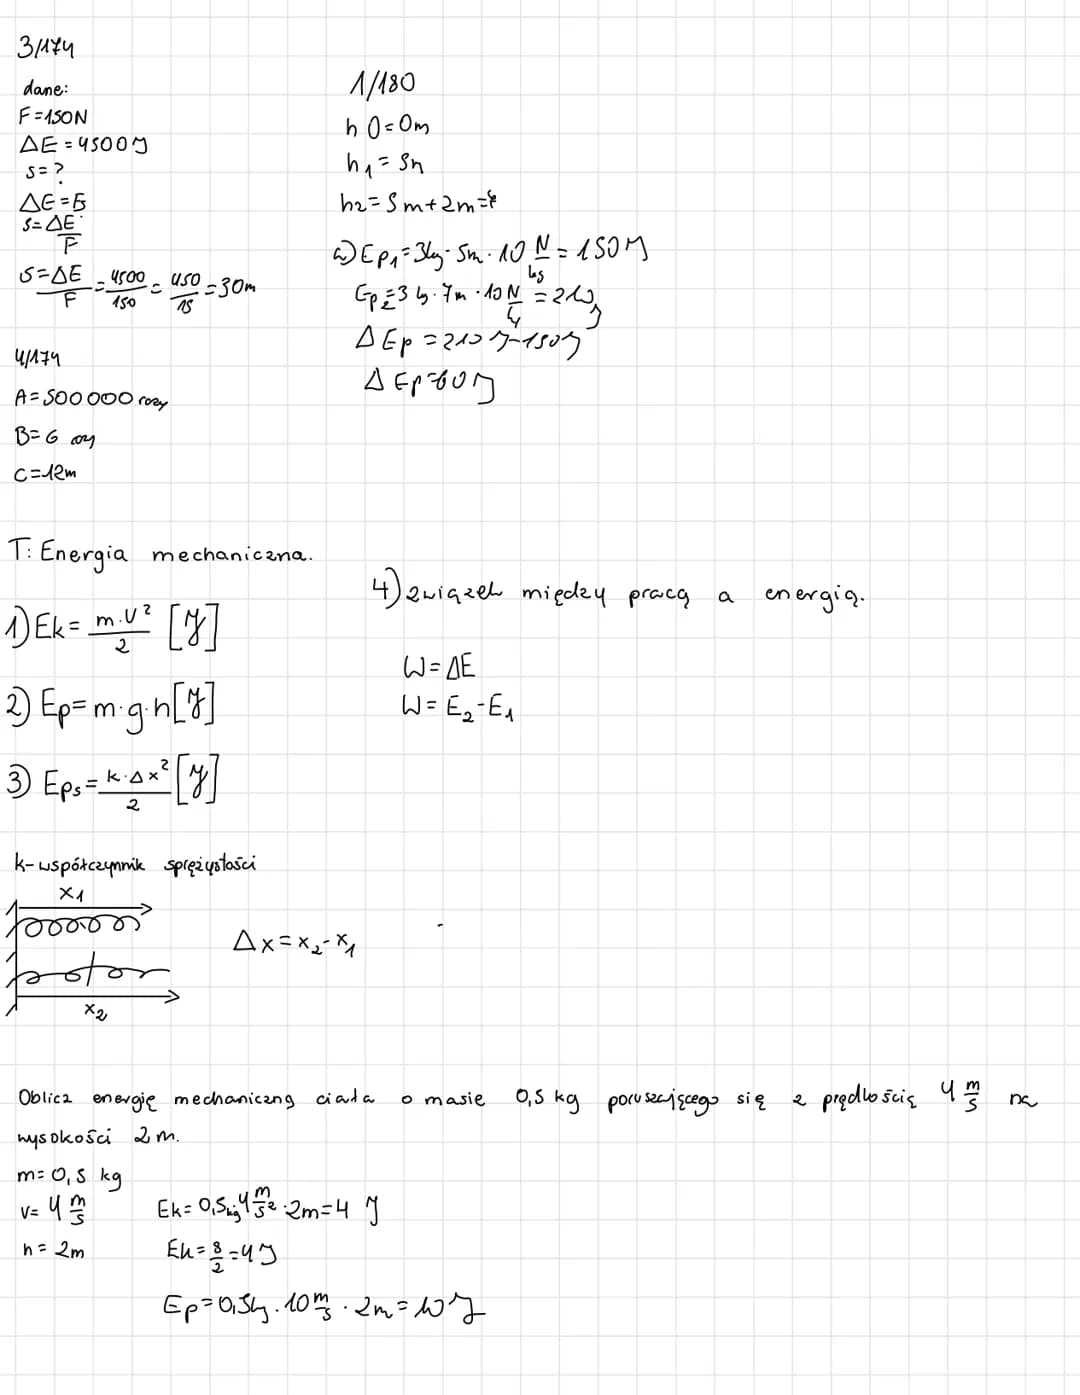 3/174
dane:
F=150N
ΔE=4500J
s=?
ΔE=
S=ΔE/F
S=ΔE/F=4500/150=450/15=30m
4/174
A=500 000 razy
B=6
C=12m
1/180
h0=0m
h1=5m
h2=5m+2m=
a) Ep1=3kg·5m·10 N/kg=150J
Ep2=3kg·7m·10 N/kg=210J
ΔEp=210J-150J
ΔEp=60J
T: Energia mechaniczna.
1) Ek=m·v²/2 [J]
2) Ep=m·g·h[J]
3) Eps=k·Δx²/2 [J]
4) związek między pracą a energią.
W=ΔE
W=E2-E1
k-współczynnik sprężystości
x1
Δx=x2-x1
x2
Oblicz energię mechaniczną ciała o masie 0,5 kg poruszającego się z prędkością 4 m/s na
wysokości 2m.
m=0,5 kg
v=4 m/s
h=2m
Ek=0,5kg·4 m/s²·2m=4 J
Ek=8/2=4J
Ep=0,5kg·10 m/s·2m=10J